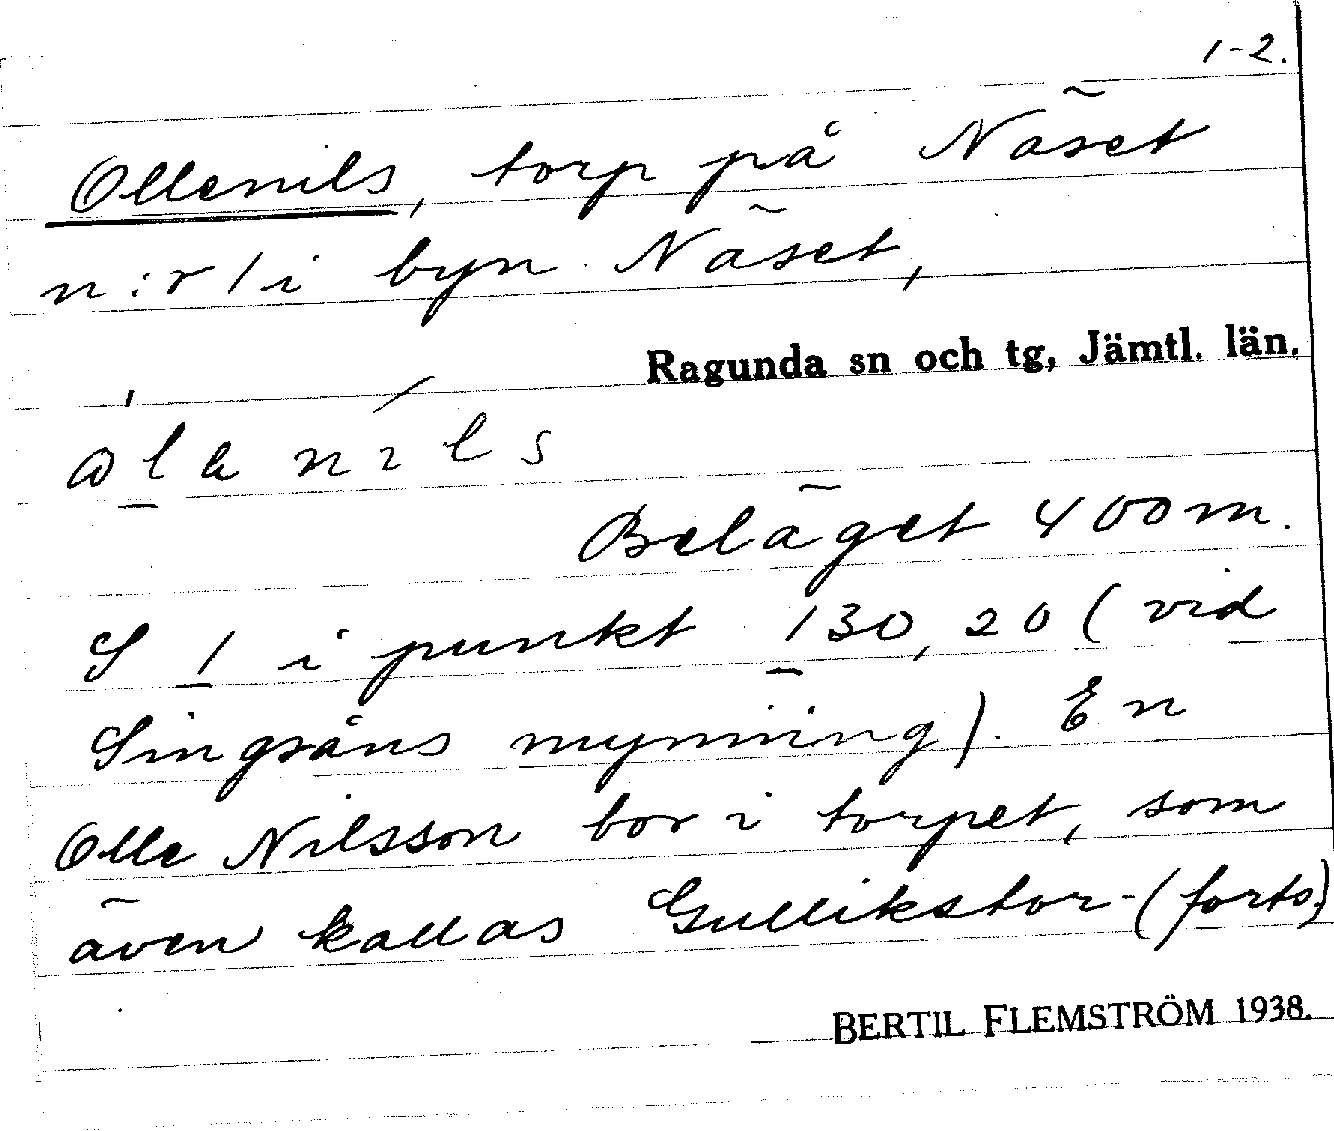 1-2.
Ollenils, torp på Näset
n:r 1 i byn Näset,
Ragunda sn och tg, Jämtl. län.
Beläget 400 m.
S 1 i punkt 130,20 (vid
Singsåns mynning). En
Olle Nilsson bor i torpet, som
även kallas Gullikstor- (forts.)
BERTIL FLEMSTRÖM 1938.